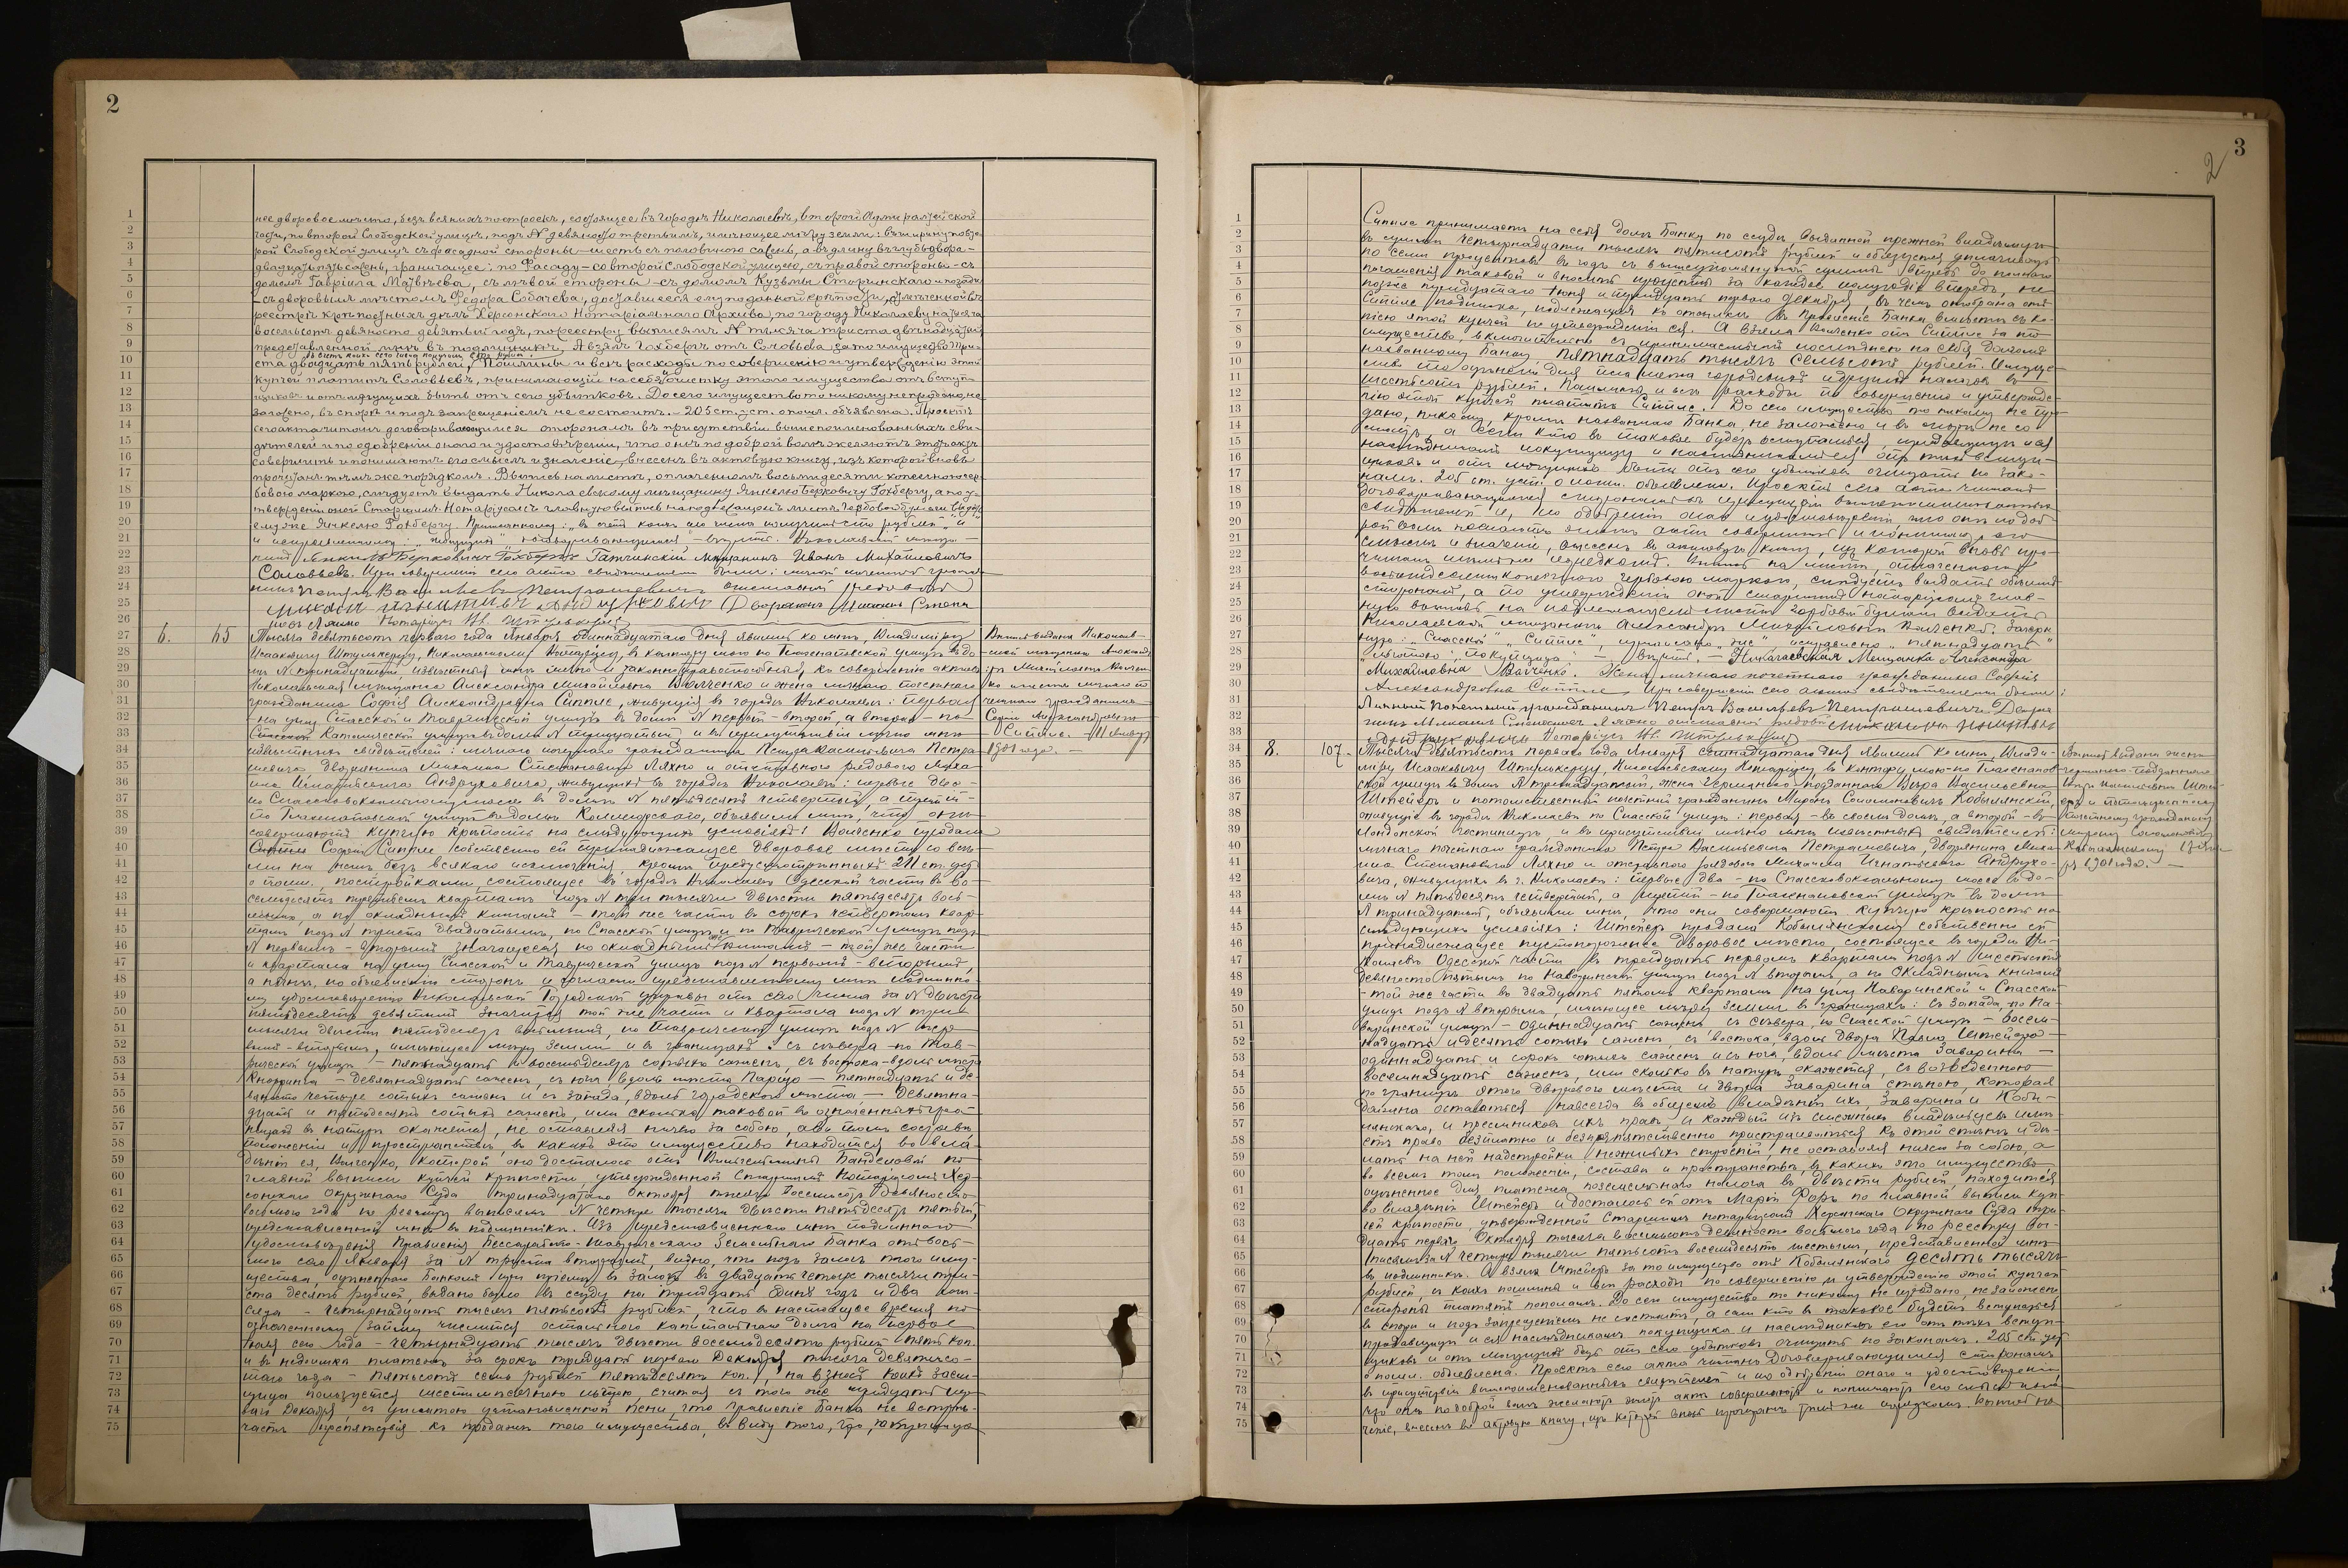 2
нее дворовое место, безъ всякихъ построекъ, состоящее въ городѣ Николаевѣ, второй Адмиралтейской
части, по второй Слободской улицѣ, подъ № девяносто третьимъ, имѣющее мѣру земли: въ ширину по вто-
рой Слободской улицѣ съ фасадной стороны – шесть съ половиною сажень, а въ длину въ глубь двора –
двадцать пять сажень, граничащее: по Фасаду – со второй Слободской улицею, съ правой стороны – съ
домомъ Гавріила Матвѣева, съ лѣвой стороны – съ домомъ Кузьмы Старинскаго и позади
– съ дворовымъ мѣстомъ Федора Собачева, доставшееся ему по данной крѣпости, отмѣченной въ
реестрѣ крѣпостныхъ дѣлъ Херсонскаго Нотаріальнаго Архива, по городу Николаеву на тысяча
восемьсотъ девяносто девятый годъ, по реестру выписямъ № тысяча триста двѣнадцать,
представленной мнѣ въ подлинникѣ. А взялъ Гохбергъ отъ Соловьева за то имущество Три-
въ счетъ коихъ сего числа получилъ сто рублей.
ста двадцать пять рублей, Пошлины и всѣ расходы по совершенію и утвержденію этой
купчей платитъ Соловьевъ, принимающій на себя очистку этого имущества отъ вступ-
щиковъ и отъ могущихъ быть отъ сего убытковъ. До сего имущество то никому не продано, не
заложено, въ спорѣ и подъ запрещеніемъ не состоитъ. – 205 ст. уст. о пошл. объявлена. Проектъ
сего акта читанъ договаривающимся сторонамъ въ присутствіи вышепоименованныхъ сви-
дѣтелей и по одобреніи онаго и удостовѣреніи, что они по доброй волѣ желаютъ этотъ актъ
совершить и понимаютъ его смыслъ и значеніе, внесенъ въ актовую книгу, изъ которой вновь
прочитанъ тѣмъ же порядкомъ. Выпись на листѣ, оплаченномъ восьмидесяти копеечною гер-
бовою маркою, слѣдуетъ выдать Николаевскому мѣщанину Янкелю Берковичу Гохбергу, а по у-
твержденіи оной Старшимъ Нотаріусомъ главную выпись на надлежащемъ листѣ гербовой бумаги выдать
ему же Янкелю Гохбергу. Приписанному: „въ счетъ коихъ сего числа получилъ сто рублей" „и"
и исправленному: „могущихъ" „договаривающимся" – вѣрить. Николаевскій мѣща-
нинъ Янкель Берковичъ Гохбергъ Гатчинскій мѣщанинъ Иванъ Михайловичъ
Соловьевъ. При совершеніи сего акта свидѣтелями были: личный почетный гражда-
нинъ Петръ Васильевъ Петрашевичъ отставной рядовой
Михаилъ Игнатьевъ Андруховичъ Дворянинъ Михаилъ Степа
новъ Ляхно Нотаріусъ Вл. Штулькерцъ
6.
65
Тысяча девятьсотъ перваго года Января одиннадцатаго дня явились ко мнѣ, Владиміру
Исааковичу Штулькерцу, Николаевскому Нотаріусу, въ контору мою по Глазенаповской улицѣ въ до-
мѣ № тринадцатый, извѣстныя мнѣ лично и законную правоспособныя къ совершенію актовъ
Николаевская мѣщанка Александра Михайловна Волченко и жена личнаго почетнаго
гражданина Софія Александровна Сиппле, живущія въ городѣ Николаевѣ: первая
– на углу Спасской и Таврической улицъ въ домѣ № первый – второй, а вторая – по
Католической улицѣ въ домѣ № тринадцатый и въ присутствіи лично мнѣ
извѣстныхъ свидѣтелей: личнаго почетнаго гражданина Петра Васильевича Петра-
шевича дворянина Михаила Степановича Ляхно и отставного рядового Миха-
ила Игнатьевича Андруховича, живущихъ въ городѣ Николаевѣ: первые два –
по Спассковокзальному шоссе въ домѣ № пятьдесятъ четвертый, а третій –
по Глазенаповской улицѣ въ домѣ, объявили мнѣ, что они
совершаютъ купчую крѣпость на слѣдующихъ условіяхъ: Волченко продала
Софіи Сиппле собственно ей принадлежащее дворовое мѣсто со всѣ-
ми на немъ безъ всякаго исключенія, кромѣ предусмотрѣнныхъ 211 ст. уст.
о пошл., постройками состоящее въ городѣ Николаевѣ Одесской части въ во-
семьдесятъ третьемъ кварталѣ подъ № три тысячи двѣсти пятьдесятъ вось-
мымъ, а по окладнымъ книгамъ – той же части въ сорокъ четвертомъ квар-
талѣ подъ № триста двадцатымъ, по Спасской улицѣ и по Таврической улицѣ подъ
№ первымъ – вторымъ значащееся по окладнымъ книгамъ – той же части
и квартала на углу Спасской и Таврической улицъ подъ № первымъ – вторымъ,
а нынѣ, по объясненію сторонъ и согласно представленному мнѣ подлинно-
му удостовѣренію Николаевской Городской Управы отъ сего числа за № двѣсти
пятьдесятъ девятымъ значится той же части и квартала подъ № три
тысячи двѣсти пятьдесятъ восьмымъ, по Таврической улицѣ подъ № пер-
вымъ – вторымъ, имѣющее мѣру земли и въ границахъ: съ сѣвера – по Тав-
рической улицѣ – пятнадцать и восемьдесятъ сотыхъ сажень, съ востока – вдоль мѣста
– девятнадцать сажень, съ юга вдоль мѣста – пятнадцать и де-
вяносто четыре сотыхъ сажень и съ запада, вдоль городского мѣста – девятна-
дцать и пятьдесятъ сотыхъ сажень, или сколько таковой въ означенныхъ гра-
ницахъ въ натурѣ окажется, не оставляя ничего за собою, а въ томъ составѣ
положеніи и пространствѣ, въ какихъ это имущество находится во вла-
дѣніи ея, Волченко, которой оно досталось отъ Вильгельмины по
главной выписи купчей крѣпости, утвержденной Старшимъ Нотаріусомъ Хер-
сонскаго Окружнаго Суда тринадцатаго Октября тысяча восемьсотъ девяносто
восьмого года по реестру выписямъ № четыре тысячи двѣсти пятьдесятъ пятый,
представленной мнѣ въ подлинникѣ. Изъ представленнаго мнѣ подлиннаго
удостовѣренія Правленія Бессарабско-Таврическаго Земельнаго Банка отъ вось-
мого сего Января за № триста вторымъ, видно, что подъ залогъ того иму-
щества, оцѣненнаго Банкомъ при пріемѣ въ залогъ въ двадцать четыре тысячи три-
ста десять рублей, выдано было въ ссуду на тридцать одинъ годъ и два мѣ-
сяца – четырнадцать тысячъ пятьсотъ рублей, что въ настоящее время по
означенному займу числится остатнаго капитальнаго долга на первое
Іюля сего года – четырнадцать тысячъ двѣсти восемьдесятъ рублей пять коп.
и въ недоимкѣ платежъ за срокъ тридцать перваго Декабря тысяча девятисо-
таго года – пятьсотъ семь рублей пятьдесятъ коп., на взносъ коихъ заем-
щица пользуется шестимѣсячною льготою, считая съ того же тридцать пер-
ваго Декабря съ уплатою установленной пени, что Правленіе Банка не встрѣ-
чаетъ препятствія къ продажѣ того имущества, въ виду того, что, покупщица
Выпись выдана Николаев-
ской мѣщанкѣ Александ-
рѣ Михайловнѣ Волчен-
ко и женѣ личнаго по-
четнаго гражданина
Софіи Александровнѣ
Сиппле. 11 Января
1901 года. –
3
2
Сиппле принимаетъ на себя долгъ Банку по ссудѣ, выданной прежней владѣлицѣ
въ суммѣ четырнадцати тысячъ пятисотъ рублей и обязуется уплачивать
по семи процентовъ въ годъ съ вышеупомянутой суммы впредь до полнаго
погашенія таковой и вносить проценты за каждое полугодіе впередъ, не
позже тридцатаго Іюня и тридцать перваго Декабря, въ чемъ отобрана отъ
Сиппле подписка, подлежащая къ отсылкѣ въ Правленіе Банка вмѣстѣ съ ко-
піею этой купчей по утвержденіи ея. А взяла Волченко отъ Сиппле за то
имущество, включительно съ принимаемымъ послѣднею на себя долгомъ
названному Банку, пятнадцать тысячъ семьсотъ рублей. Имуще-
ство то оцѣнено для платежа городскихъ и другихъ налоговъ въ
шестьсотъ рублей. Пошлины и всѣ расходы по совершенію и утвержде-
нію этой купчей платитъ Сиппле. До сего имущество то никому не про-
дано, никому, кромѣ названнаго Банка, не заложено и въ спорѣ не со
стоитъ, а если кто въ таковое будетъ вступаться, продавщицѣ и ея
наслѣдникамъ покупщицу и наслѣдниковъ ея отъ тѣхъ вступ-
щиковъ и отъ могущихъ быть отъ сего убытковъ очищать по зако-
намъ. 205 ст. уст. о пошл. объявлена. Проектъ сего акта читанъ
договаривающимся сторонамъ въ присутствіи вышепоименованныхъ
свидѣтелей и, по одобреніи онаго и удостовѣреніи, что они по доб-
рой волѣ желаютъ этотъ актъ совершить и понимаютъ его
смыслъ и значеніе, внесенъ въ актовую книгу, изъ которой вновь про-
читанъ тѣмъ же порядкомъ. Выпись на листѣ, оплаченномъ
восьмидесятикопеечною гербовою маркою, слѣдуетъ выдать обѣимъ
сторонамъ, а по утвержденіи оной старшимъ нотаріусомъ глав-
ную выпись на надлежащемъ листѣ гербовой бумаги выдать
Николаевской мѣщанкѣ Александрѣ Михайловнѣ Волченко. Зачерк-
нуто: „Спасской" „Сиппле", приписано „же" исправлено „пятнадцать"
„льготою" „покупщица" – вѣрить. – Николаевская Мѣщанка Александра
Михайловна Волченко. Жена личнаго почетнаго гражданина Софія
Александровна Сиппле. При совершеніи сего акта свидѣтелями были:
Личный Почетный гражданинъ Петръ Васильевъ Петрашевичъ Дворя
нинъ Михаилъ Степановъ Ляхно отставной рядовой Михаилъ Игнатьевъ
Андруховичъ Нотаріусъ Вл. Штулькерцъ
8.
107.
Тысяча девятьсотъ перваго года Января дня явились ко мнѣ, Влади-
міру Исааковичу Штулькерцу, Николаевскому Нотаріусу, въ контору мою по Глазенапов-
ской улицѣ въ домѣ № тринадцатый, жена Германскаго подданнаго Вѣра Васильевна
Штейеръ и потомственный почетный гражданинъ Миронъ Соломоновичъ Кобылянскій,
живущіе въ городѣ Николаевѣ по Спасской улицѣ: первая – въ своемъ домѣ, а второй – въ
Лондонской гостиницѣ, и въ присутствіи лично мнѣ извѣстныхъ свидѣтелей:
личнаго почетнаго гражданина Петра Васильевича Петрашевича, дворянина Миха-
ила Степановича Ляхно и отставного рядового Михаила Игнатьевича Андрухо-
вича, живущихъ въ г. Николаевѣ: первые два – по Спассковокзальному шоссе въ до-
мѣ № пятьдесятъ четвертый, а третій – по Глазенаповской улицѣ въ домѣ
№ тринадцатый, объявили мнѣ, что они совершаютъ купчую крѣпость на
слѣдующихъ условіяхъ: Штейеръ продала Кобылянскому собственно ей
принадлежащее пустопорожнее дворовое мѣсто, состоящее въ городѣ Ни-
колаевѣ, Одесской части въ тридцать первомъ кварталѣ подъ № шестьсотъ
девяносто пятымъ по Наваринской улицѣ подъ № вторымъ, а по окладнымъ книгамъ
– той же части въ двадцать пятомъ кварталѣ на углу Наваринской и Спасской
улицъ подъ № вторымъ, имѣющее мѣру земли въ границахъ: съ запада, по На-
варинской улицѣ – одиннадцать сажень, съ сѣвера, по Спасской улицѣ – восем-
надцать и десять сотыхъ сажень, съ востока, вдоль двора Штейеръ –
одиннадцать и сорокъ сотыхъ сажень и съ юга, вдоль мѣста Заварина –
восемнадцать сажень, или сколько въ натурѣ окажется, съ возведенною
по границѣ этого дворового мѣста и двора Заварина стѣною, которая
должна оставаться навсегда въ общемъ владѣніи ихъ, Заварина и Кобы-
лянскаго, и преемниковъ ихъ правъ и каждый изъ смежныхъ владѣльцевъ имѣ-
етъ право безплатно и безпрепятственно пристраиваться къ этой стѣнѣ и дѣ-
лать на ней надстройки нежилыхъ строеній, не оставляя ничего за собою, а
во всемъ томъ положеніи, составѣ и пространствѣ, въ какихъ это имущество,
оцѣненное для платежа поземельнаго налога въ двѣсти рублей, находится
во владѣніи Штейеръ и досталось ей отъ Маріи Форъ по главной выписи куп-
чей крѣпости, утвержденной Старшимъ нотаріусомъ Херсонскаго Окружнаго Суда три-
дцать перваго Октября тысяча восемьсотъ девяносто восьмого года по реестру вы-
писямъ за № четыре тысячи пятьсотъ восемьдесятъ шестымъ, представленной мнѣ
въ подлинникѣ. А взяла Штейеръ за то имущество отъ Кобылянскаго десять тысячъ
рублей, съ коихъ пошлины и всѣ расходы по совершенію и утвержденію этой купчей
стороны платятъ пополамъ. До сего имущество то никому не продано, не заложено
въ спорѣ и подъ запрещеніемъ не состоитъ, а если кто въ таковое будетъ вступаться
продавщицѣ и ея наслѣдникамъ покупщика и наслѣдниковъ его отъ тѣхъ вступ-
щиковъ и отъ могущихъ быть отъ сего убытковъ очищать по законамъ. 205 ст. уст.
о пошл. объявлена. Проектъ сего акта читанъ договаривающимся сторонамъ
въ присутствіи вышепоименованныхъ свидѣтелей и по одобреніи онаго и удостовѣреніи,
что они по доброй волѣ желаютъ этотъ актъ совершить и понимаютъ его смыслъ и зна-
ченіе, внесенъ въ актовую книгу, изъ которой вновь прочитанъ тѣмъ же порядкомъ. Выпись на
Выпись выдана женѣ
германско-подданнаго
Вѣрѣ Васильевнѣ Штей-
еръ и потомственному
почетному гражданину
Мирону Соломоновичу
Кобылянскому Янва-
ря 1901 года. –